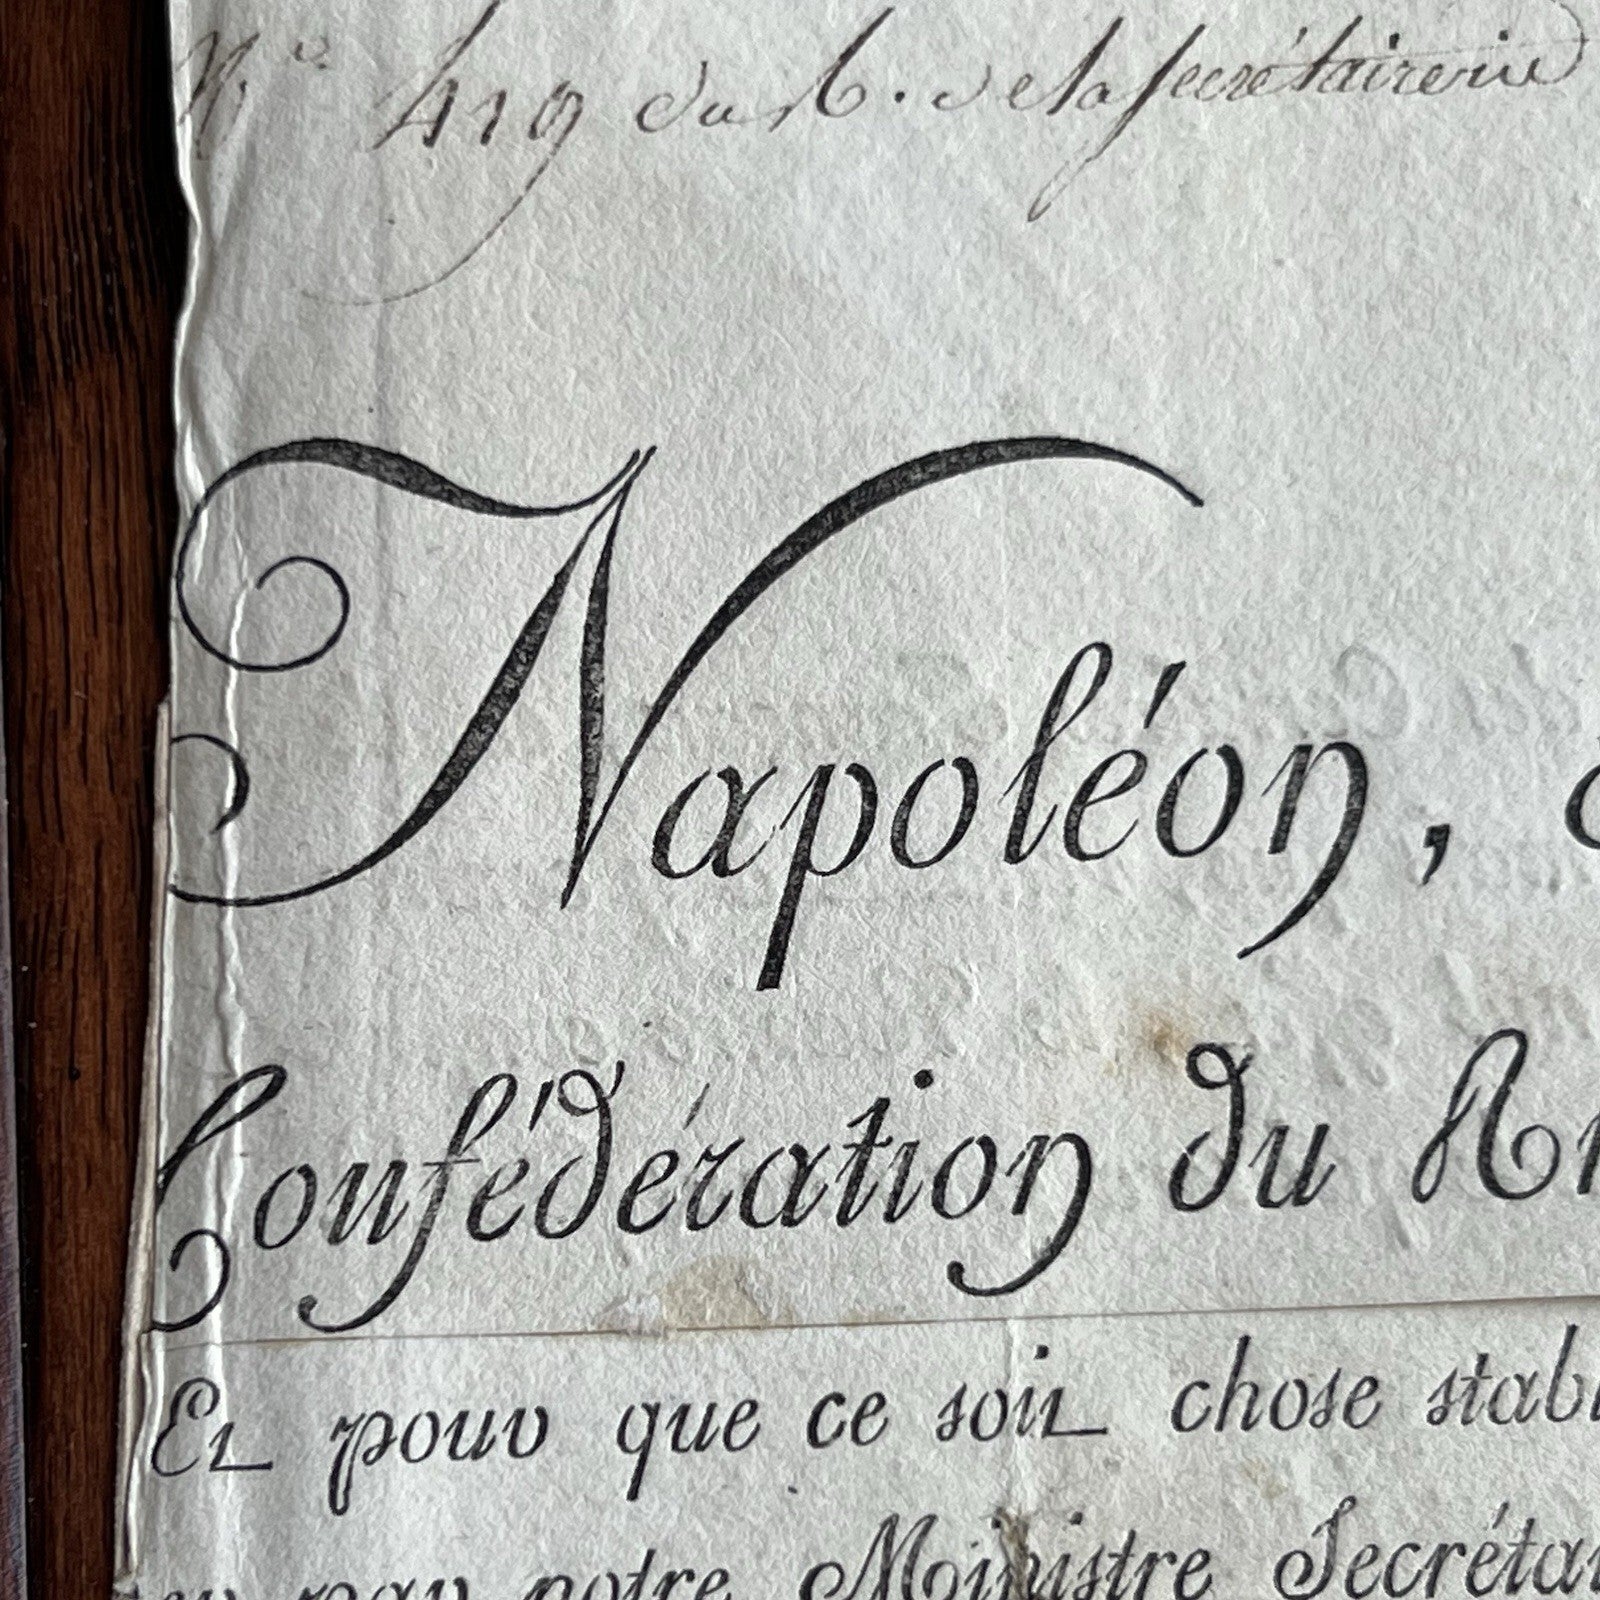 N.º 419 du b. de la secrétairerie
Napoléon,
Confédération du
Et pour que ce soit chose
par notre Ministre